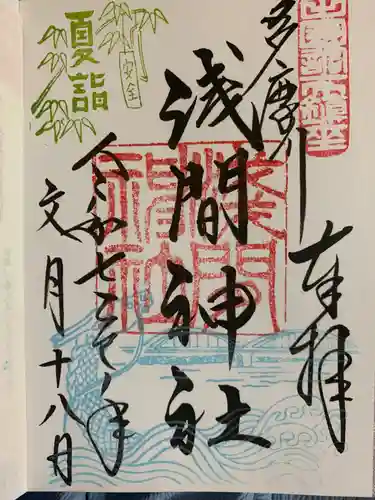 多摩川
奉拝
浅間神社
淺間神社
夏詣
安全
令和七乙巳ノ年
文月十八日